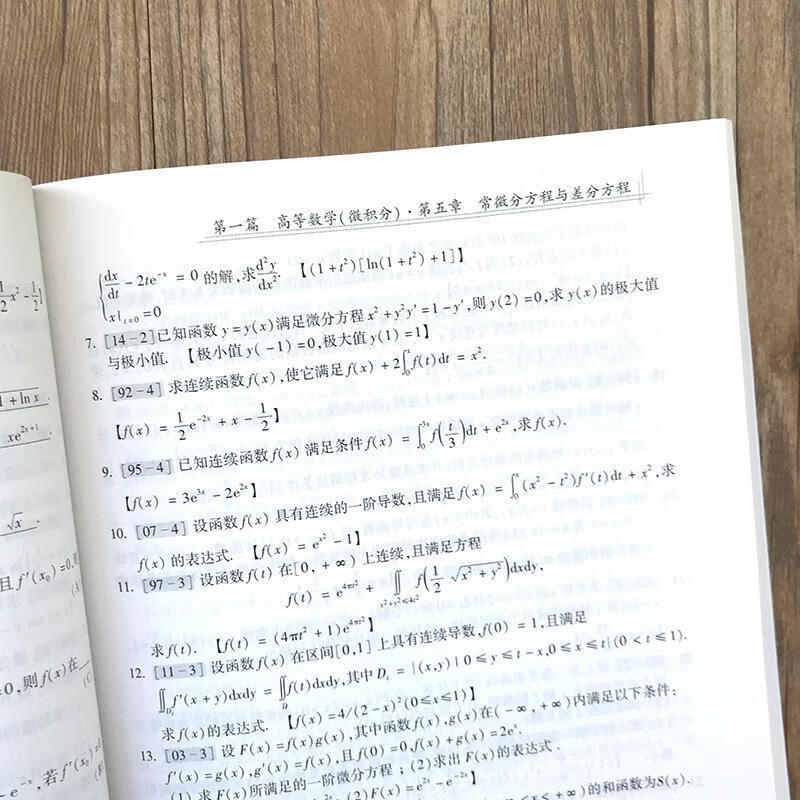 第一篇 高等数学(微积分)·第五章 常微分方程与差分方程
{dx/dt - 2te^{-x} = 0 的解,求 d²y/dx². 【(1+t²)[ln(1+t²)+1]】
x|_{t=0} = 0
7. [14-2]已知函数 y=y(x)满足微分方程 x²+y²y′=1-y′,则 y(2)=0,求 y(x)的极大值
与极小值. 【极小值 y(-1)=0,极大值 y(1)=1】
8. [92-4] 求连续函数 f(x),使它满足 f(x)+2∫₀ˣf(t)dt = x².
【f(x) = 1/2 e^{-2x} + x - 1/2】
9. [95-4] 已知连续函数 f(x) 满足条件 f(x) = ∫₀^{3x} f(t/3)dt + e^{2x},求 f(x).
【f(x) = 3e^{3x} - 2e^{2x}】
10. [07-4] 设函数 f(x) 具有连续的一阶导数,且满足 f(x) = ∫₀ˣ (x² - t²)f′(t)dt + x²,求
f(x) 的表达式. 【f(x) = e^{x²} - 1】
11. [97-3] 设函数 f(t) 在[0, +∞) 上连续,且满足方程
f(t) = e^{4πt²} + ∬_{x²+y²≤4t²} f(1/2 √(x²+y²))dxdy,
求 f(t). 【f(t) = (4πt² + 1)e^{4πt²}】
12. [11-3] 设函数 f(x) 在区间[0,1]上具有连续导数,f(0) = 1,且满足
∬_{D_t} f′(x+y)dxdy = ∬_{D_t} f(t)dxdy,其中 D_t = |(x,y) | 0≤y≤t-x,0≤x≤t|(0<t≤1).
求 f(x)的表达式. 【f(x) = 4/(2-x)²(0≤x≤1)】
13. [03-3] 设 F(x) = f(x)g(x),其中函数 f(x),g(x)在(-∞,+∞)内满足以下条件:
f′(x) = g(x),g′(x) = f(x),且 f(0) = 0,f(x)+g(x) = 2eˣ.
(1) 求 F(x)所满足的一阶微分方程;(2)求出 F(x)的表达式.
(2)F(x) = e^{2x} - e^{-2x}】
的和函数为S(x).
1/2 x² - 1/2]
1 + ln x .
xe^{2x+1} .
√x .
且 f′(x₀)=0,
则 f(x)在
若 f′(x₀)